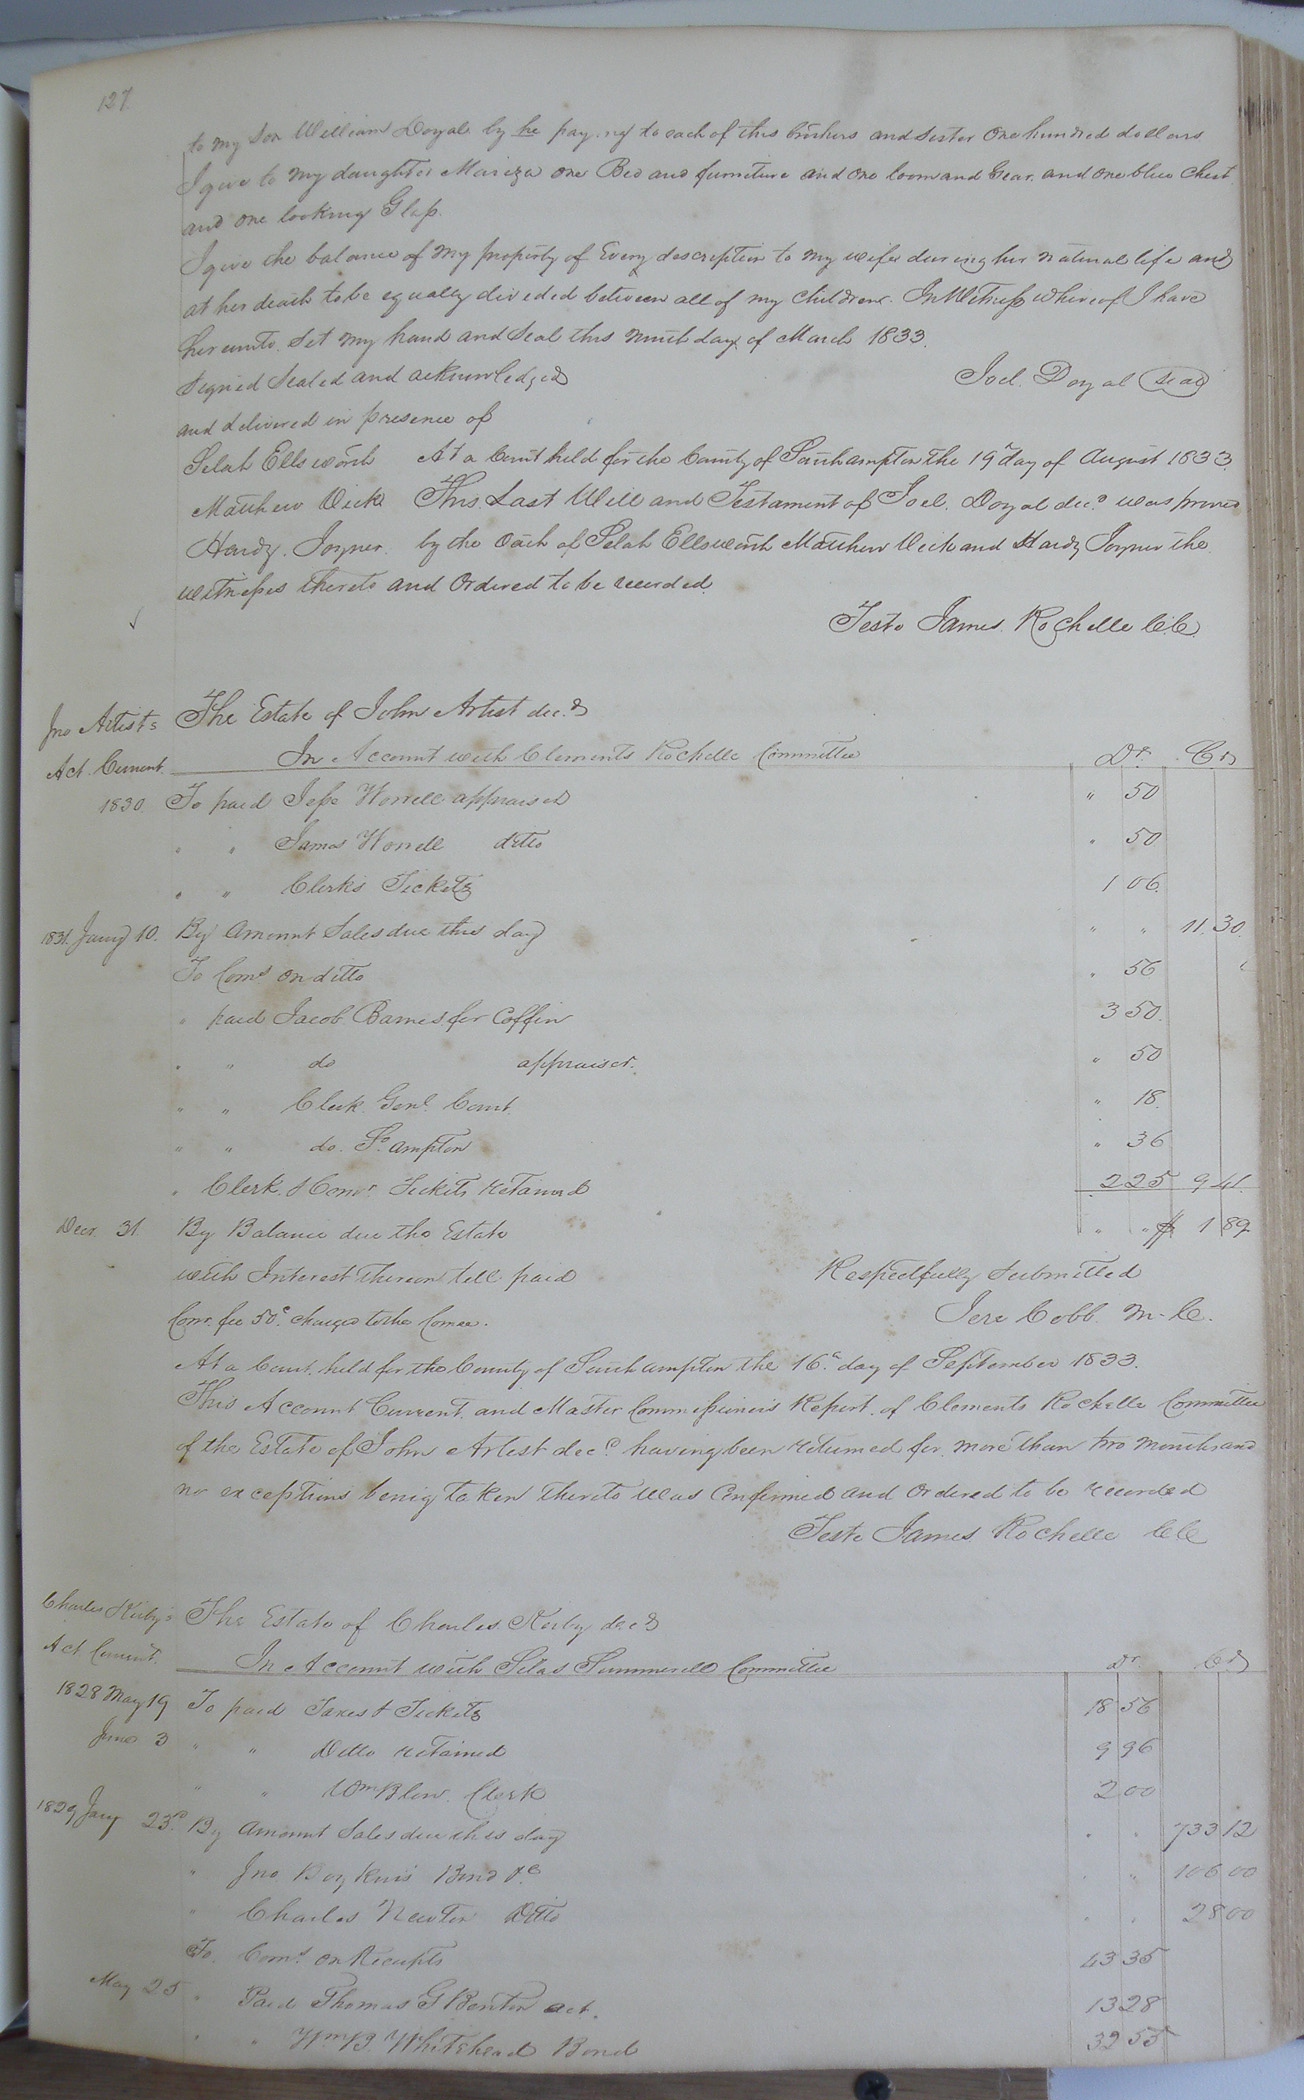 127
to my Son William Doyal by he paying to each of this brothers and sister One hundred dollars
I give to my daughter Mariza one Bed and furniture and one loom and Gear. and one blue Chest
and one looking Glass.
I give the balance of my property of Every description to my wife during her natural life and
at her death to be equally divided between all of my children. In Witness whereof I have
hereunto Set my hand and Seal this ninth day of March 1833.
Signed Sealed and acknowledged Joel. Doyal Seal
and delivered in presence of
Selah Ellsworth At a Court held for the County of Southampton the 19th day of August 1833
Matthew Vick This Last Will and Testament of Joel. Doyal decd was proved
Hardy. Joyner. by the Oath of Selah Ellsworth Matthew Vick and Hardy Joyner the
witnesses thereto and Ordered to be recorded.
Teste James Rochelle CC
Jno Artist's The Estate of John Artist decd
Act. Current In Account with Clements Rochelle Committee Dr. Cr
1830. To paid Jesse Worrell appraiser " 50
" " James Worrell ditto " 50
" " Clerk's Tickets 1 06
1831. Jany 10. By Amount Sales due this day " " 11.30.
To Coms on ditto " 56
" paid Jacob Barnes for Coffin 3 50.
" " do appraiser. " 50
" " Clerk Genl. Court. " 18.
" " do. So. ampton " 36
" Clerk & Comr Tickets retained 2 25 9 41.
Decr 31 By Balance due the Estate " " $ 1 89
with Interest thereon till paid Respectfully Submitted
Comr. fee 50c. charged to the Comee. Jere Cobb. M. C.
At a Court held for the County of Southampton the 16th day of September 1833.
This Account Current and Master Commissioner's Report. of Clements Rochelle Committee
of the Estate of John Artest decd having been returned for more than two months and
no exceptions being taken thereto was Confirmed and Ordered to be recorded
Teste James Rochelle CC
Charles Kirby's The Estate of Charles Kerby decd
Act Current. In Account with Silas Summerell Committee Dr Cr
1828 May 19 To paid Taxes & Tickets 18 56
June 3 " " Ditto retained 9 96
" " Wm Blow. Clerk 2 00
1829 Jany 23d. By Amount Sales due this day " " 733 12
" Jno Boykin's Bond &c " " 106 00
" Charles Newton Ditto " " 28 00
To. Coms. on Receipts 43 35
May 25 " Paid Thomas G Benton act. 13 28
" " Wm B. Whitehead Bond 32 55